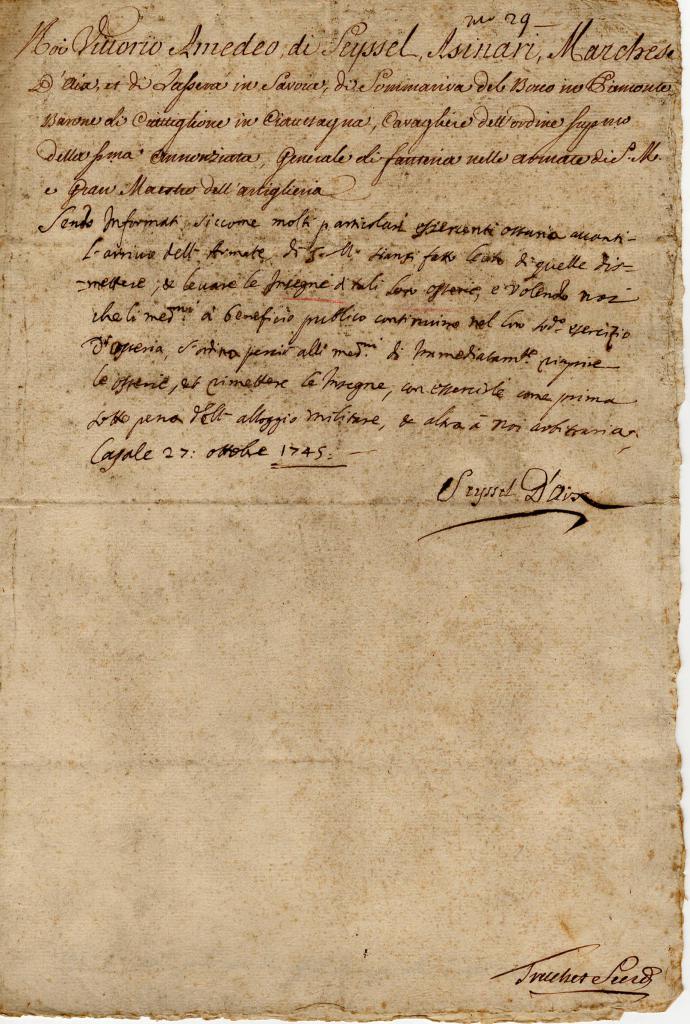 no 29
Noi Vittorio Amedeo, di Seyssel, Asinari, Marchese
D'aix, et di Lasserà in Savoia, di Sommariva del Bosco in Piamonte
Barone di Ciattiglione in Ciautagna, Cavagliere dell'ordine supmo
della sma annonziata, Generale di fanteria nelle armate di S. M.
e Gran Maestro dell'artiglieria
Sendo Informati, siccome molti particolari essercenti osteria avanti
L'arrivo dell'Armate di S. M. siansi fatto lecito di quelle dis-
-mettere, & levare le Insegne di tali loro osterie, e volendo noi
che li medmi à beneficio publico continuino nel loro sodo esercizio
d'osteria, s'ordina perciò alli medmi di Immediatamte riaprire
le osterie, et rimettere le Insegne, con essercirle come prima
sotto pena dell'alloggio militare, & altra à noi arbitraria,
Casale 27: ottobre 1745:
Seyssel D'Aix
Truchet